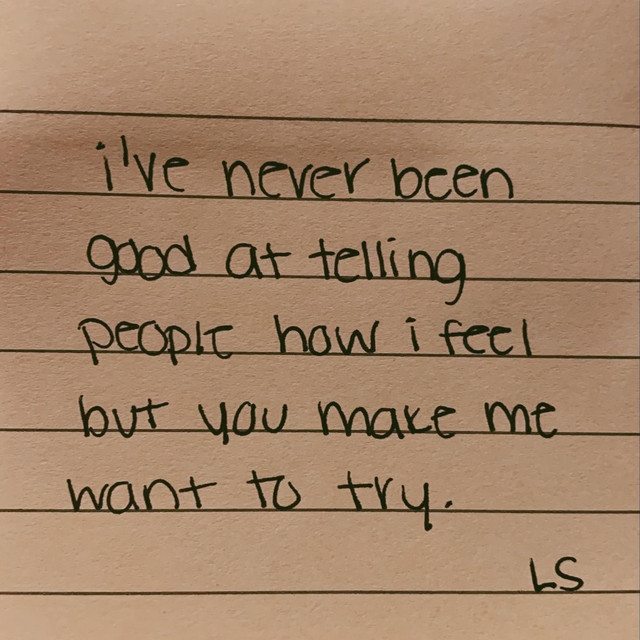 i've never been
good at telling
people how i feel
but you make me
want to try.
LS